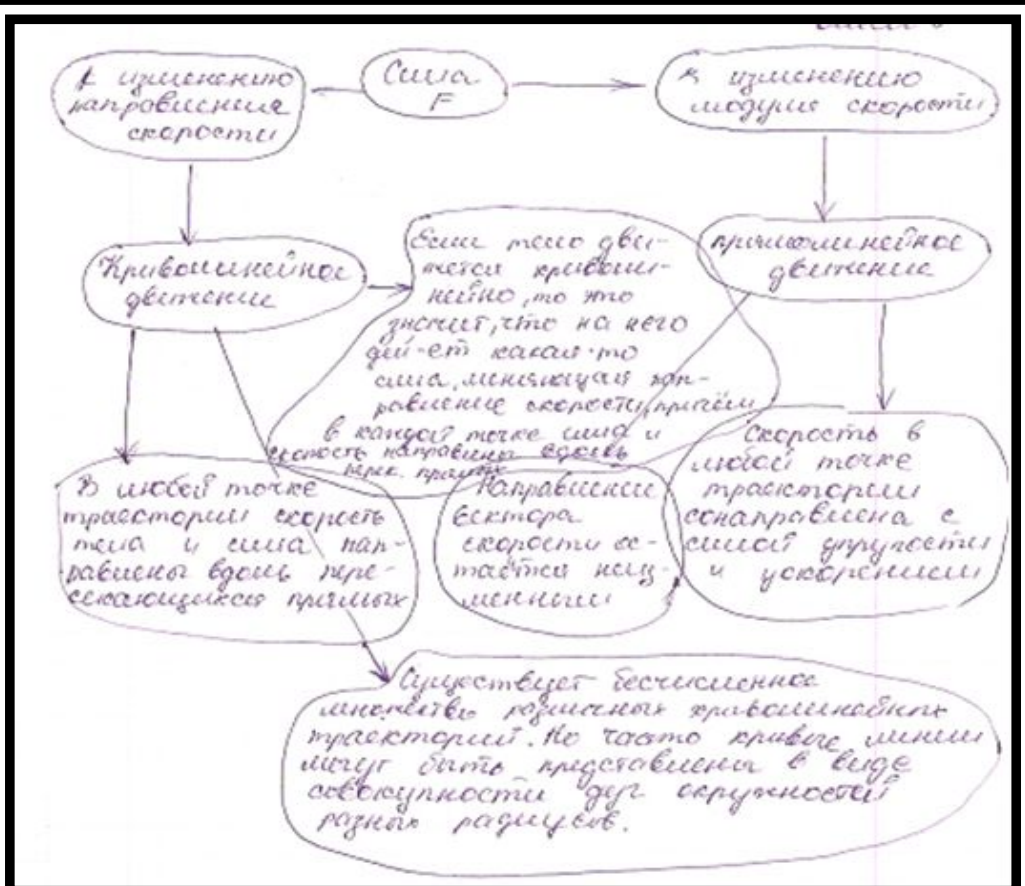 к изменению
направления
скорости
Сила
F
к изменению
модуля скорости
Криволинейное
движение
Если тело дви-
жется криволи-
нейно, то это
значит, что на него
дей-ет какая-то
сила, меняющая нап-
равление скорости, причём
в каждой точке сила и
скорость направлены вдоль
перек. прямых
прямолинейное
движение
В любой точке
траектории скорость
тела и сила нап-
равлены вдоль пере-
секающихся прямых
Направление
вектора
скорости ос-
таётся неиз-
менными
Скорость в
любой точке
траектории
сонаправлена с
силой упругости
и ускорением
Существует бесчисленное
множество различных криволинейных
траекторий. Но часто кривые линии
могут быть представлены в виде
совокупности дуг окружностей
разных радиусов.